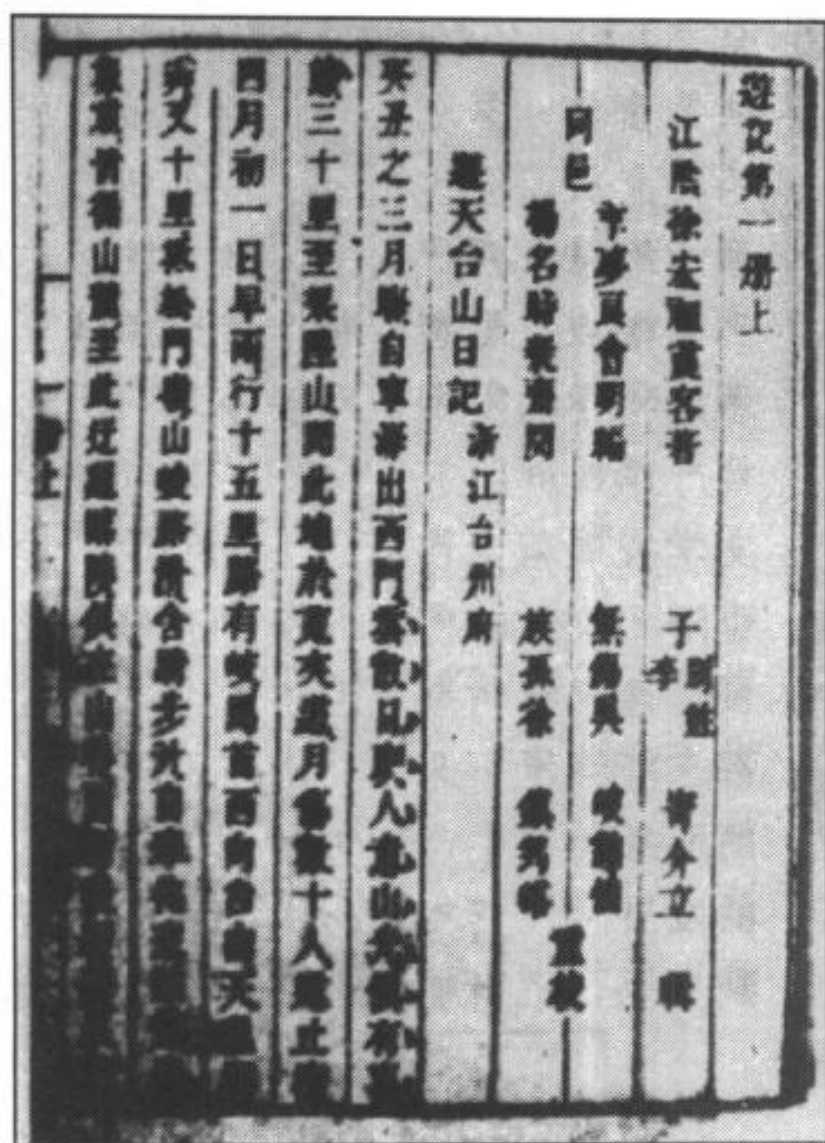 遊記第一册上
江陰徐宏祖霞客著 子李 寄介立 輯
同邑
楊名時凝齋閱
無錫吳 峻
族孫徐 鎮筠峪
重校
遊天台山日記 浙江台州府
癸丑之三月晦自寧海出西門雲散日朗人意山光俱有
態三十里至梁隍山聞此地於菟夾道月傷數十人遂止
四月初一日早雨行十五里路有岐馬首西向台山天色
霽又十里抵松門嶺山峻路滑舍騎步行自奉化來
皆循山麓至此迂迴臨陟俱在山脊